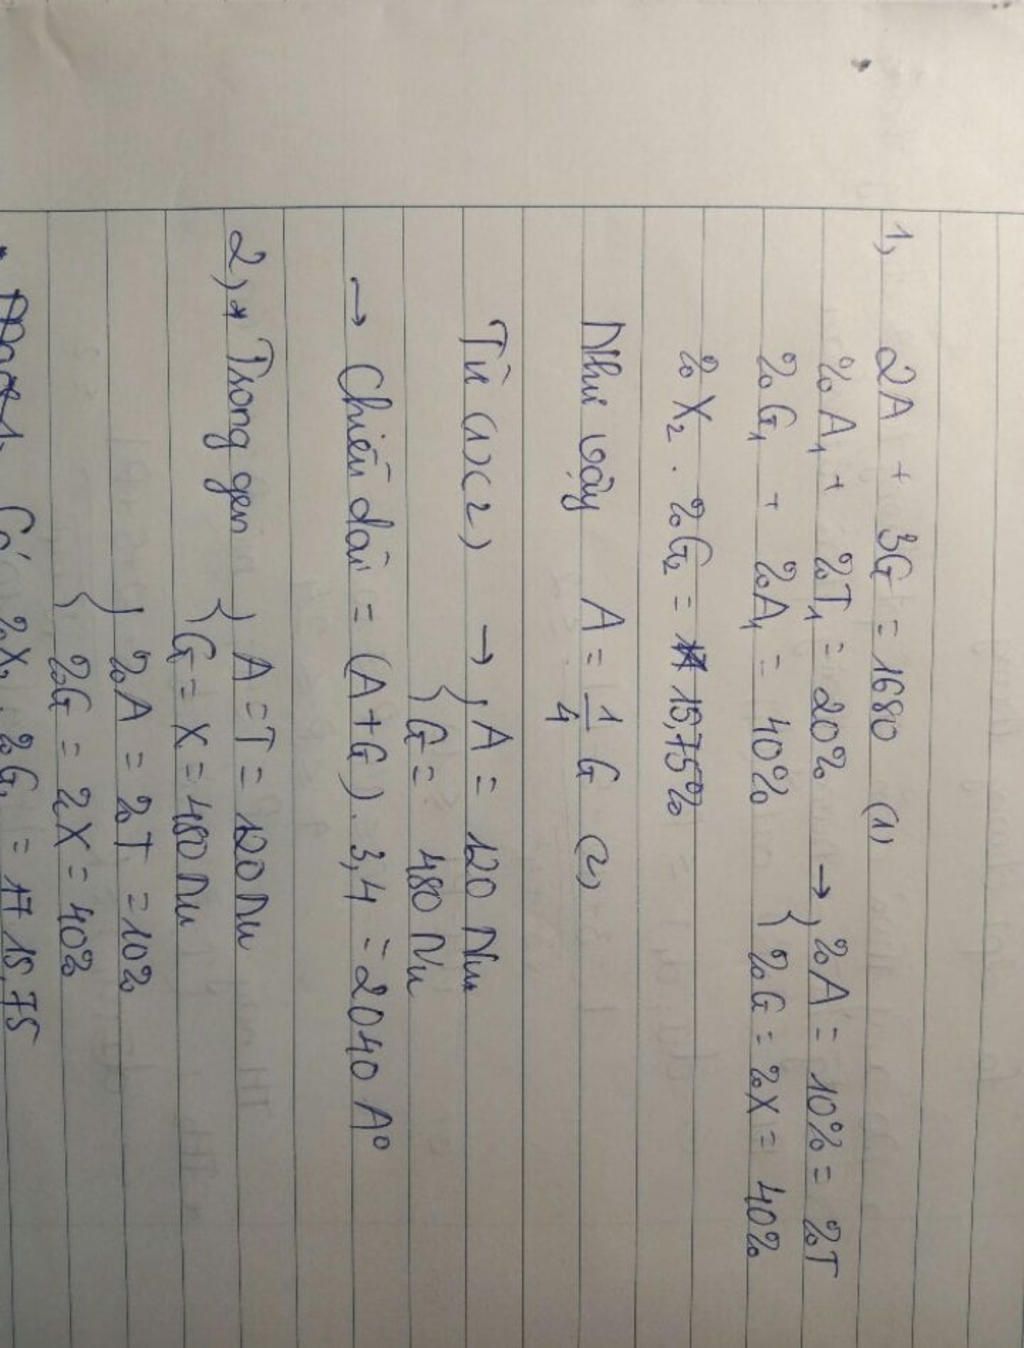 1, 2A + 3G = 1680 (1)
%A₁ + %T₁ = 20% → { %A = 10% = %T
%G₁ + %A₁ = 40% { %G = %X = 40%
%X₂ . %G₂ = 15,75%
Như vậy A = 1/4 G (2)
Từ (1)(2) → { A = 120 Nu
{ G = 480 Nu
→ Chiều dài = (A+G). 3,4 = 2040 A⁰
2, * Trong gen { A = T = 120 Nu
{ G = X = 480 Nu
{ %A = %T = 10%
{ %G = %X = 40%
Có %X₁ . %G₁ = 15,75